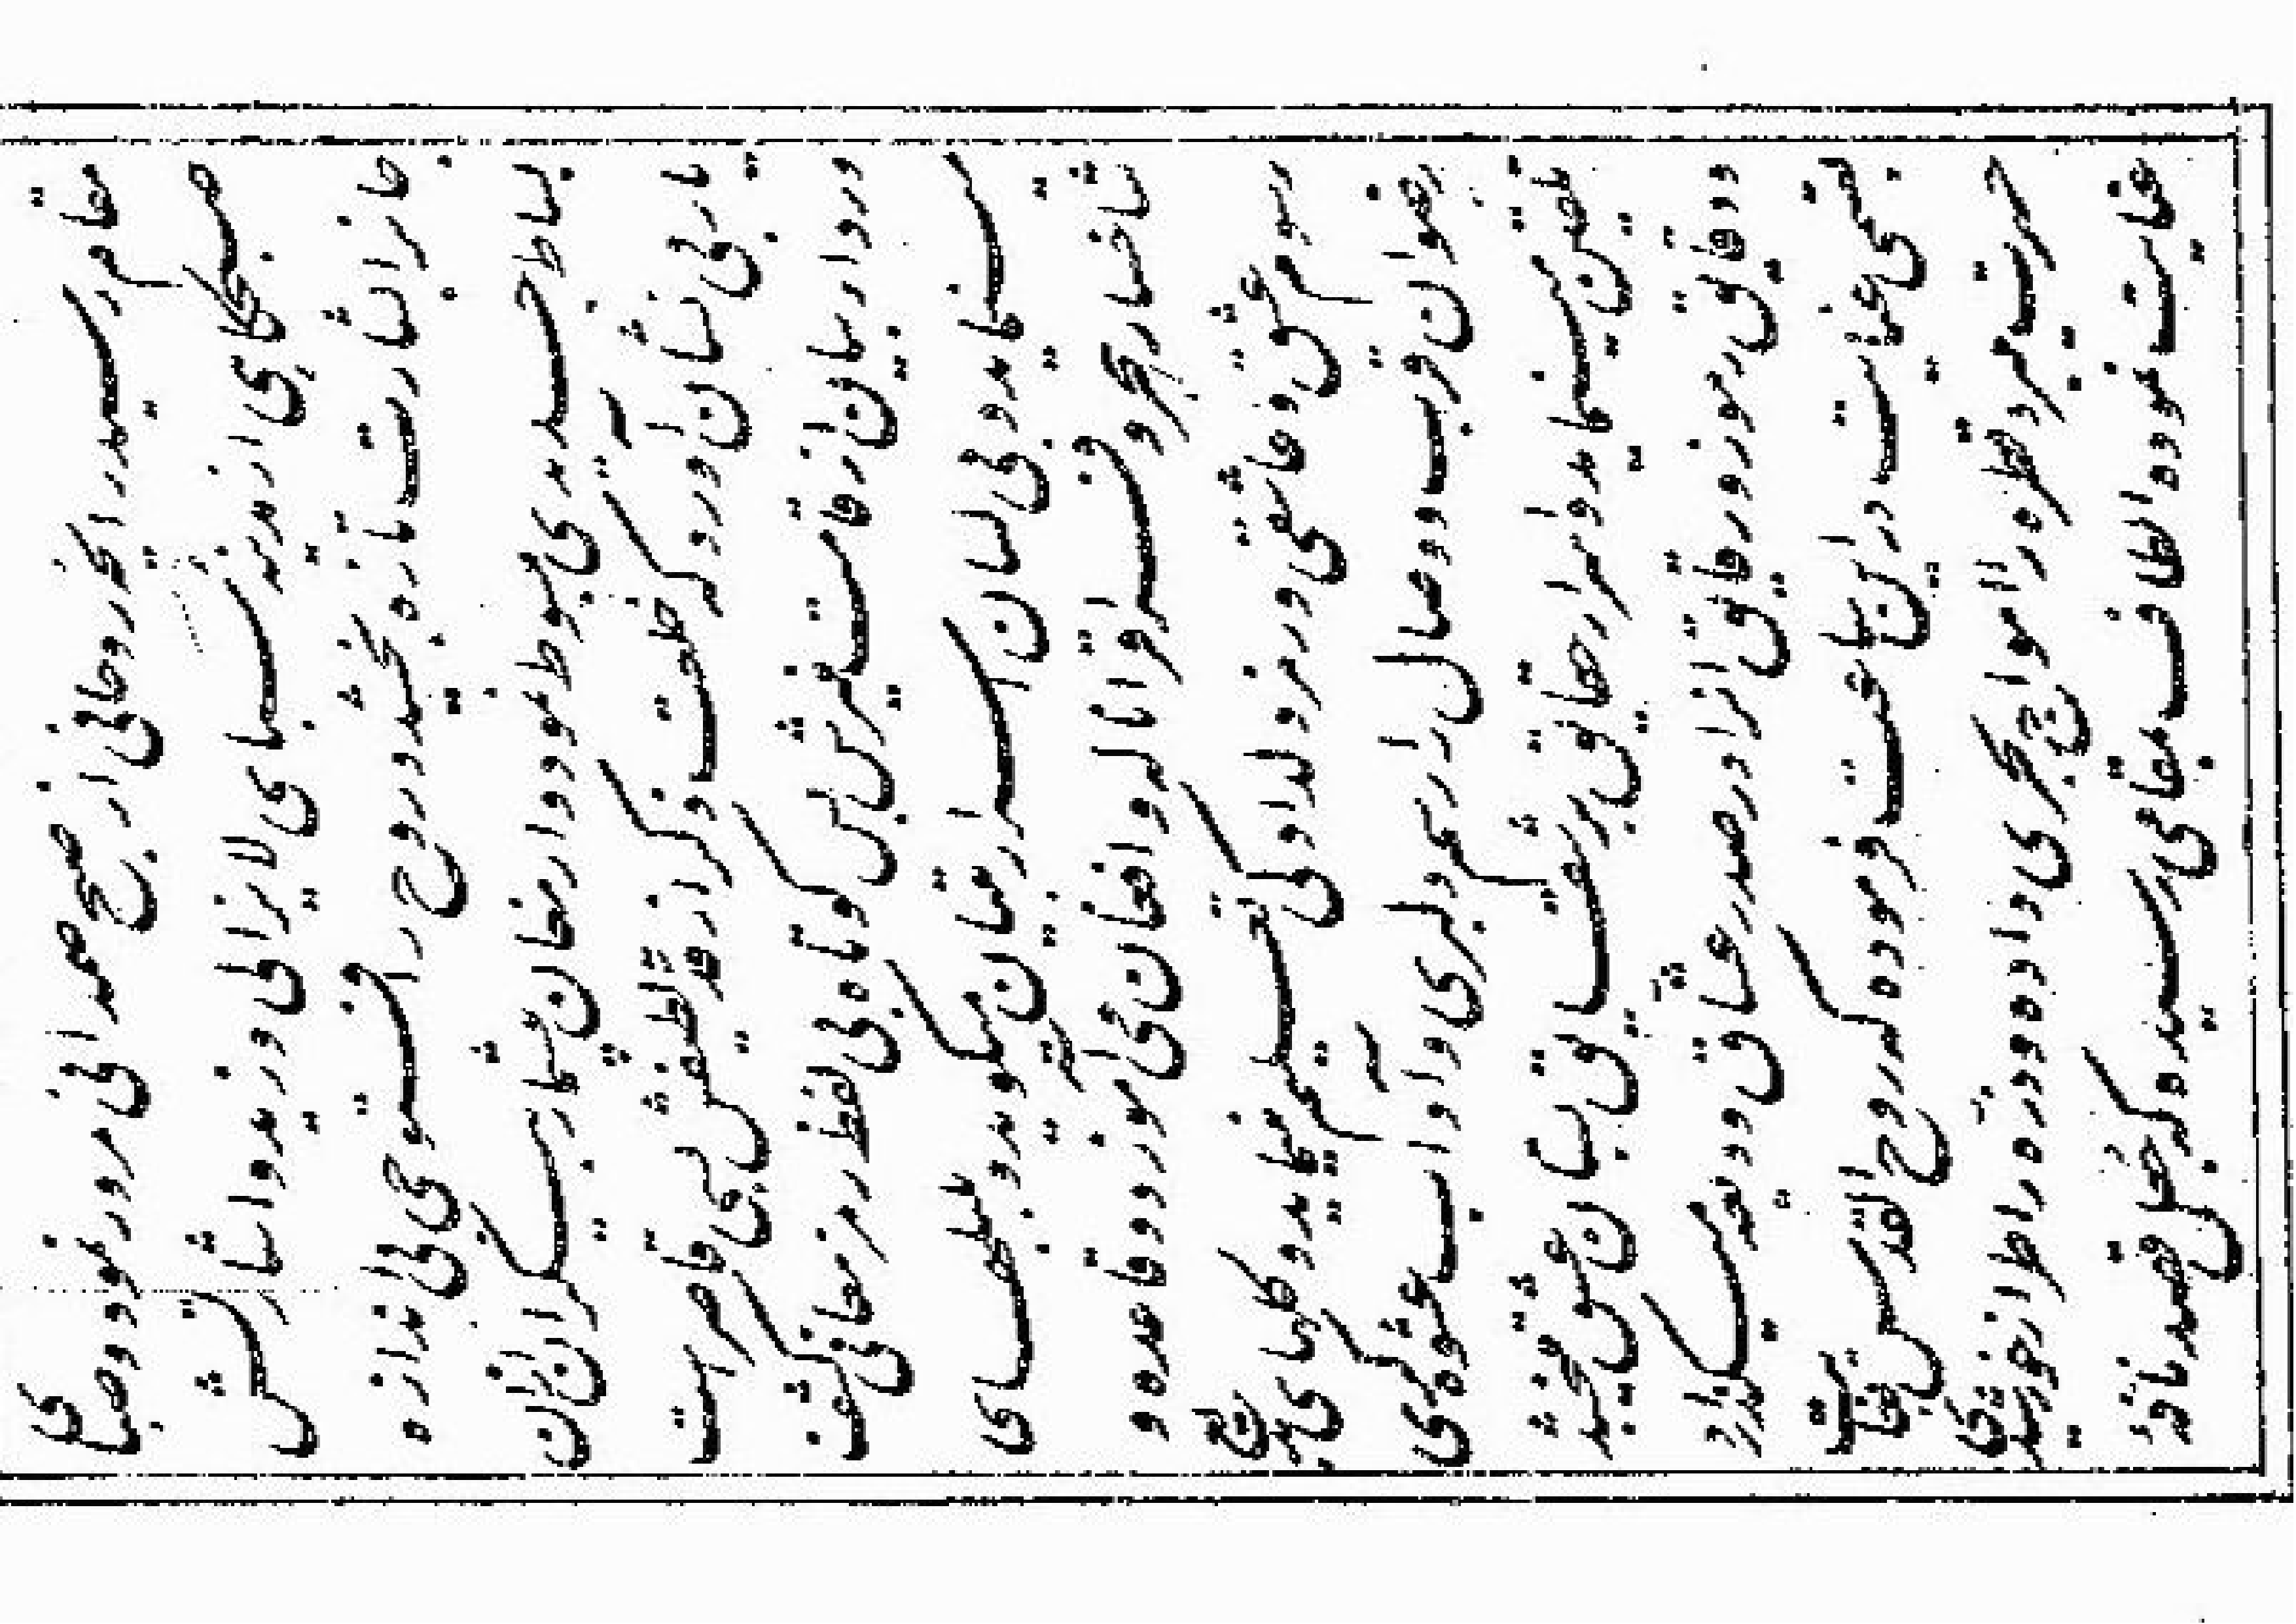 مقام رسیدند اگر روحانی از صبح صمدانی مرور نمود و صبای
صبحگاهی از مدینه سبای لایزالی وزید و اشارتش
جانرا بشارت تازه بخشید و روح را فتوحی بی اندازه
بساط جدیدی مبسوط نمود و ارمغان بیشمار بیکران از آن
یار بی نشان آورد که خلعت ذکر از قد لطیفش بسی قاصر است
و رداء بیان از قامت منیرش بس کوتاه بی لفظ رمز معانی کشف
مینماید و بی لسان اسرار تبیان میگوید و بلبلهای
شاخسار هجر و فراق را ناله و افغان می آموزد و قاعده و
رسوم عشق و عاشقی و رمز تعلیم مینماید و گلهای بدیع
رضوان قرب و وصال را رسم دلبری و آداب عشوه گری
تلقین مینماید و اسرار حقایق بر شقایق بستان عشق میبخشد
و دقایق رموز و رقایق آنرا در صدر عشاق ودیعه میگذارد
بقسمی عنایت در این ساعت فرموده که روح القدس بغایت
حسرت میبرد قطره را امواج بحری داده و ذره را طراز خورشیدی
عنایت نموده الطاف بمقامی رسیده که جعل قصد نافه